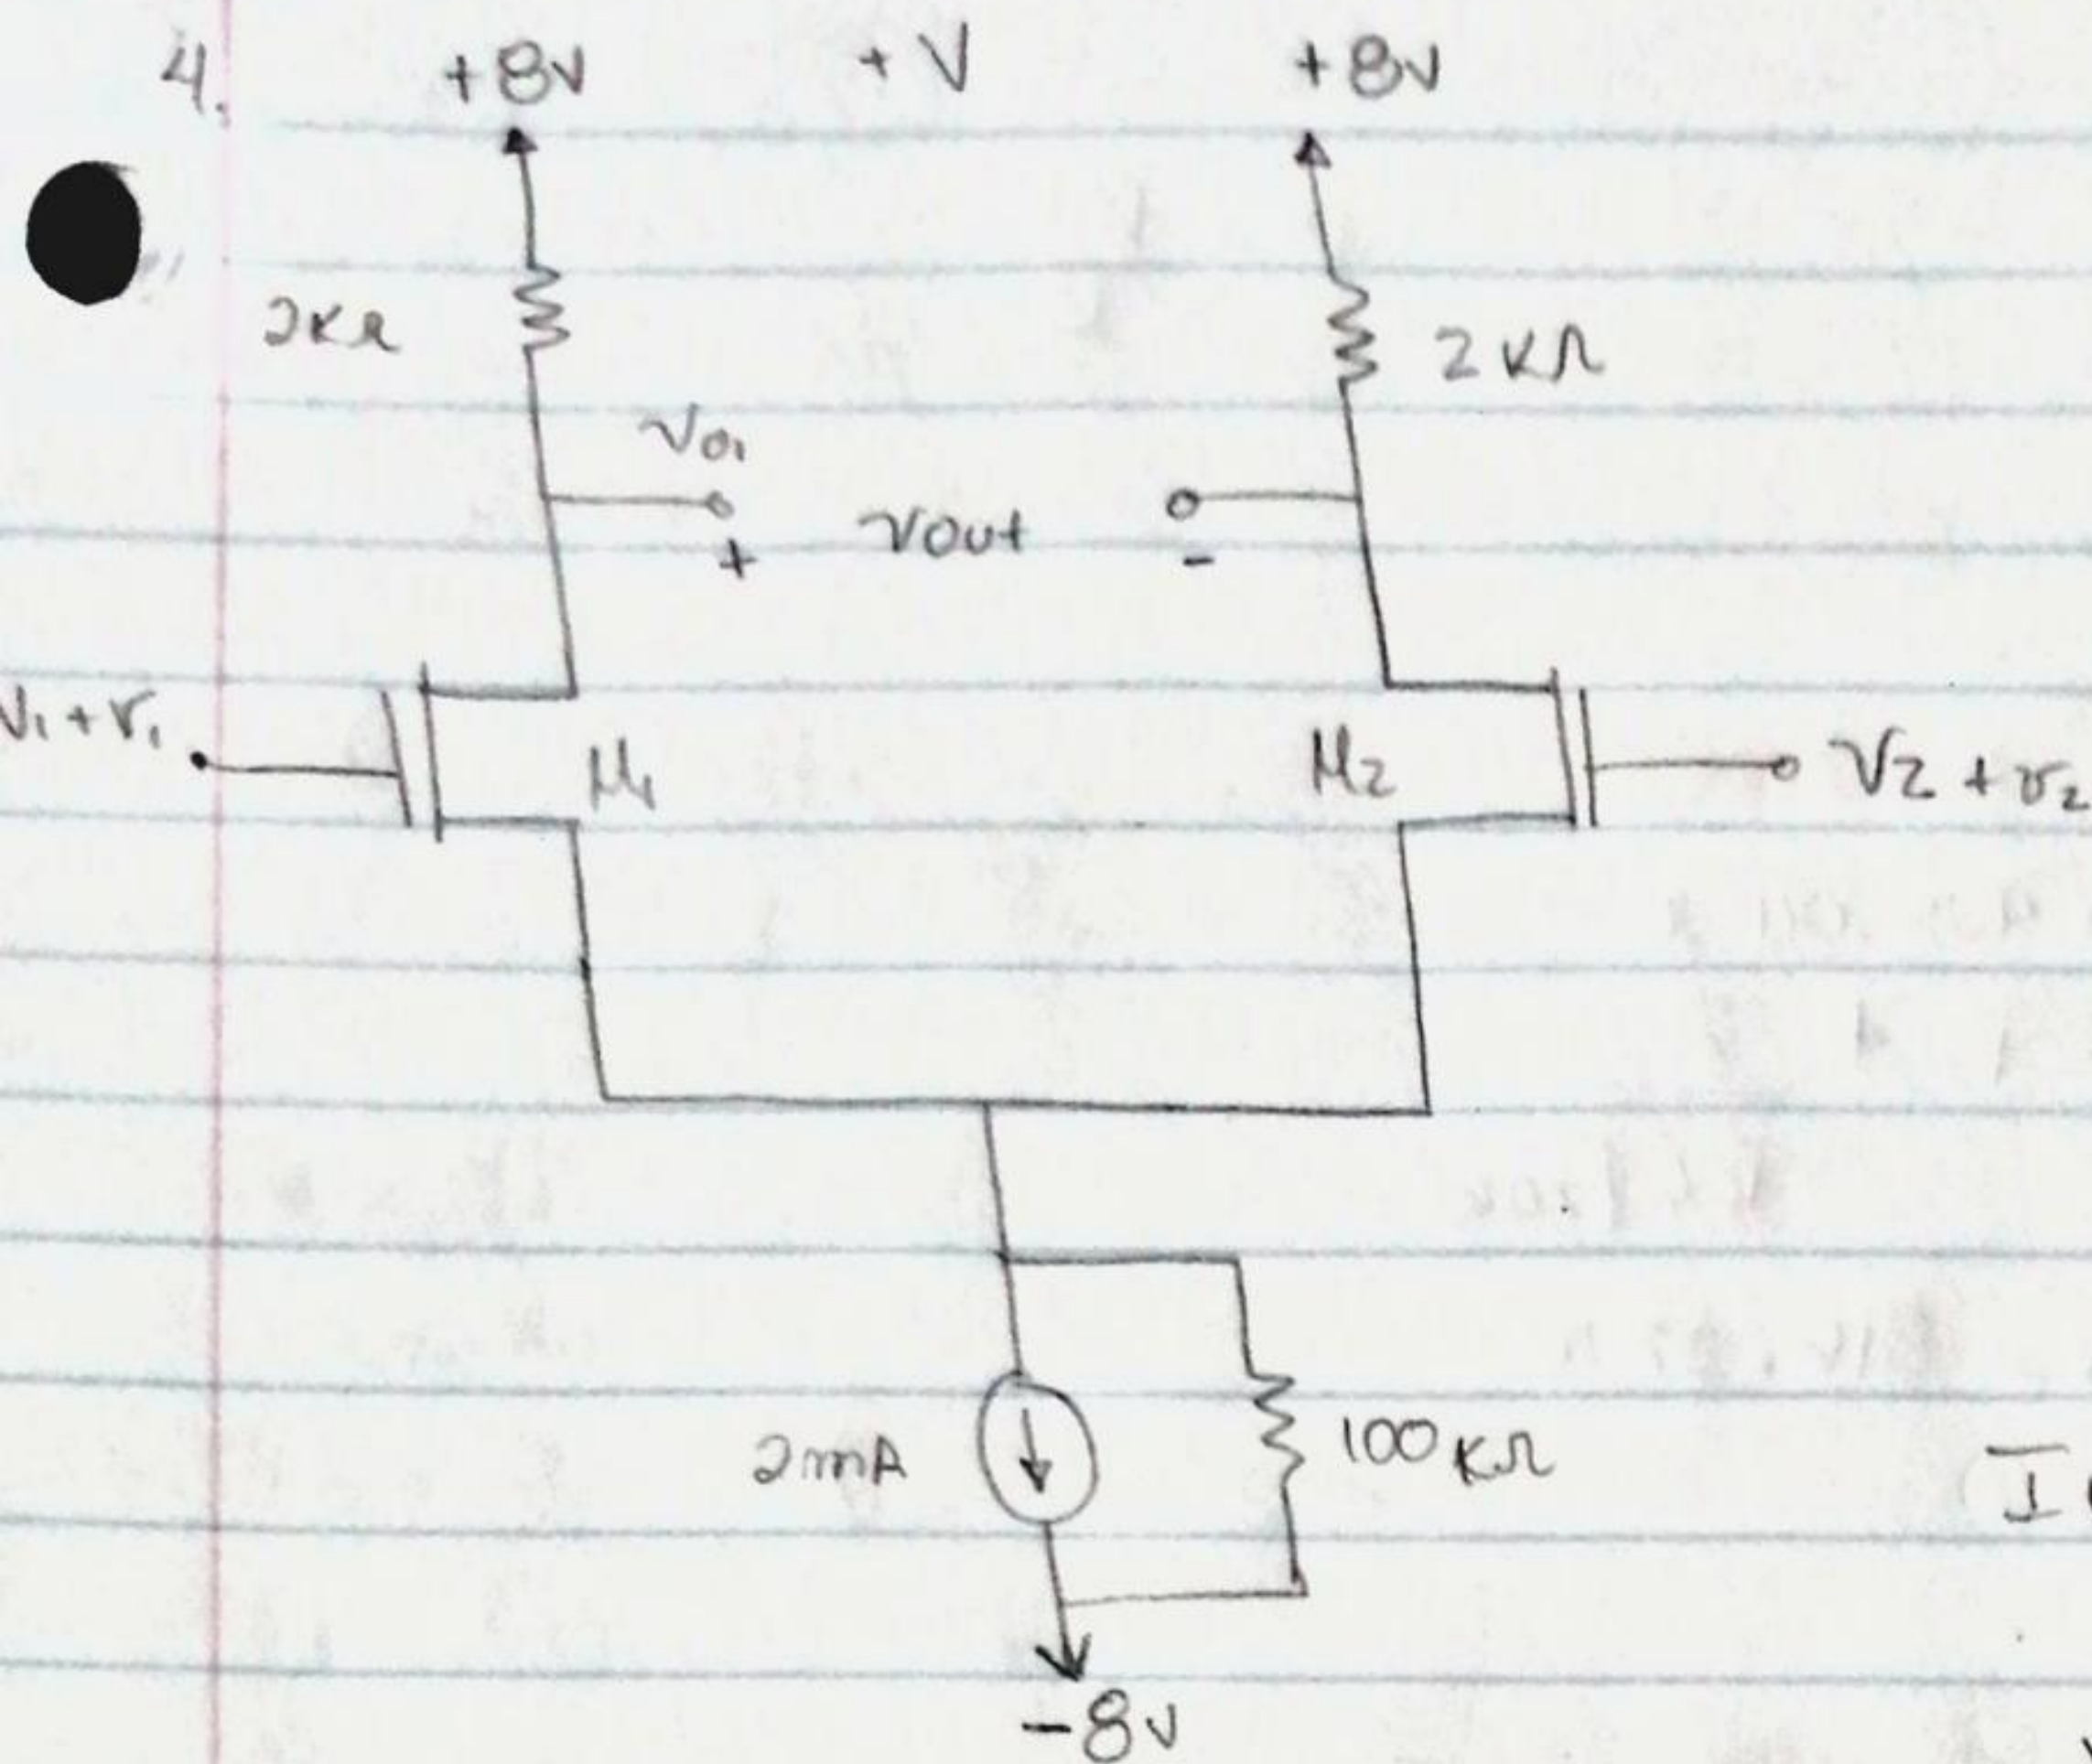 4. +8v + V +8v
2KΩ 2KΩ
vo1
vout
+ -
V1+v1 M1 M2 V2+v2
2mA 100KΩ
-8v